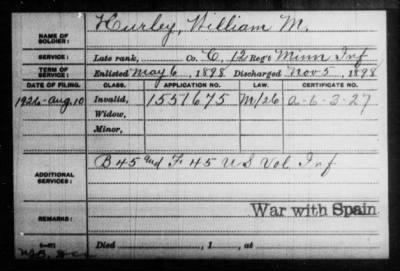 NAME OF SOLDIER: Hurley, William M.
SERVICE: Late rank, Co. C, 12 Reg't Minn Inf
TERM OF SERVICE: Enlisted May 6, 1898 Discharged Nov 5, 1898
DATE OF FILING. CLASS. APPLICATION NO. LAW. CERTIFICATE NO.
1926-Aug. 10 Invalid, 1551675 M/26 a-6-3-27
Widow,
Minor,
ADDITIONAL SERVICES: B 45 and F 45 U S Vol Inf
REMARKS: War with Spain
Died , 1 , at